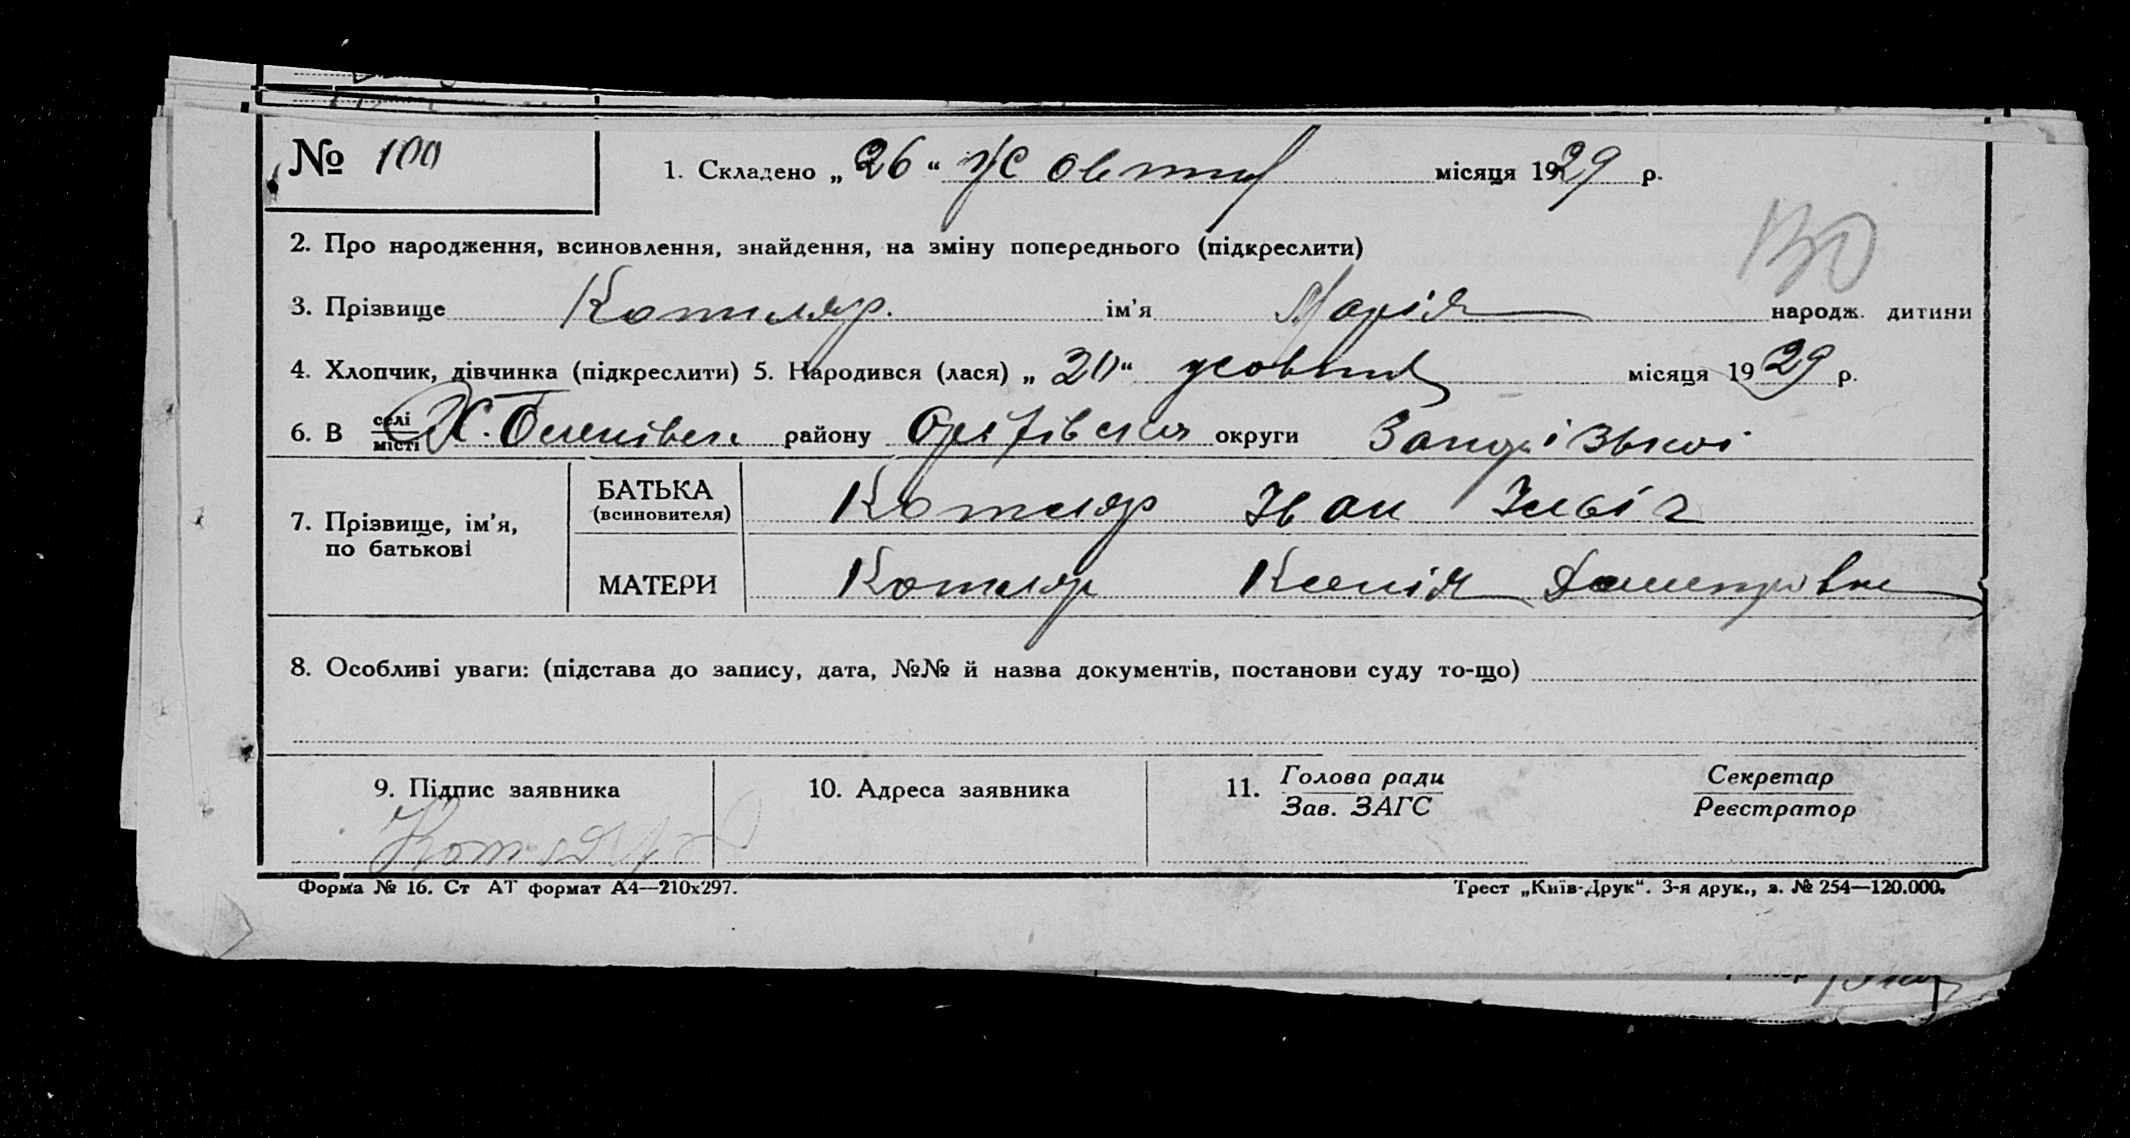 № 100
1. Складено „ 26 “ Жовтня місяця 1929 р.
2. Про народження, всиновлення, знайдення, на зміну попереднього (підкреслити)
3. Прізвище Котляр. ім’я Марія народж. дитини
4. Хлопчик, дівчинка (підкреслити) 5. Народився (лася) „ 20 “ жовтня місяця 1929 р.
6. В селі місті Х. району Оріхівськ округи Запорізької
7. Прізвище, ім’я, по батькові
БАТЬКА (всиновителя) Котляр Іван
МАТЕРИ Котляр Ксенія
8. Особливі уваги: (підстава до запису, дата, №№ й назва документів, постанови суду то-що)
9. Підпис заявника 10. Адреса заявника 11. Голова ради Секретар
Зав. ЗАГС Реєстратор
Котляр
Форма № 16. Ст АТ формат А4—210х297. Трест „Київ-Друк“. 3-я друк., з. № 254—120.000.